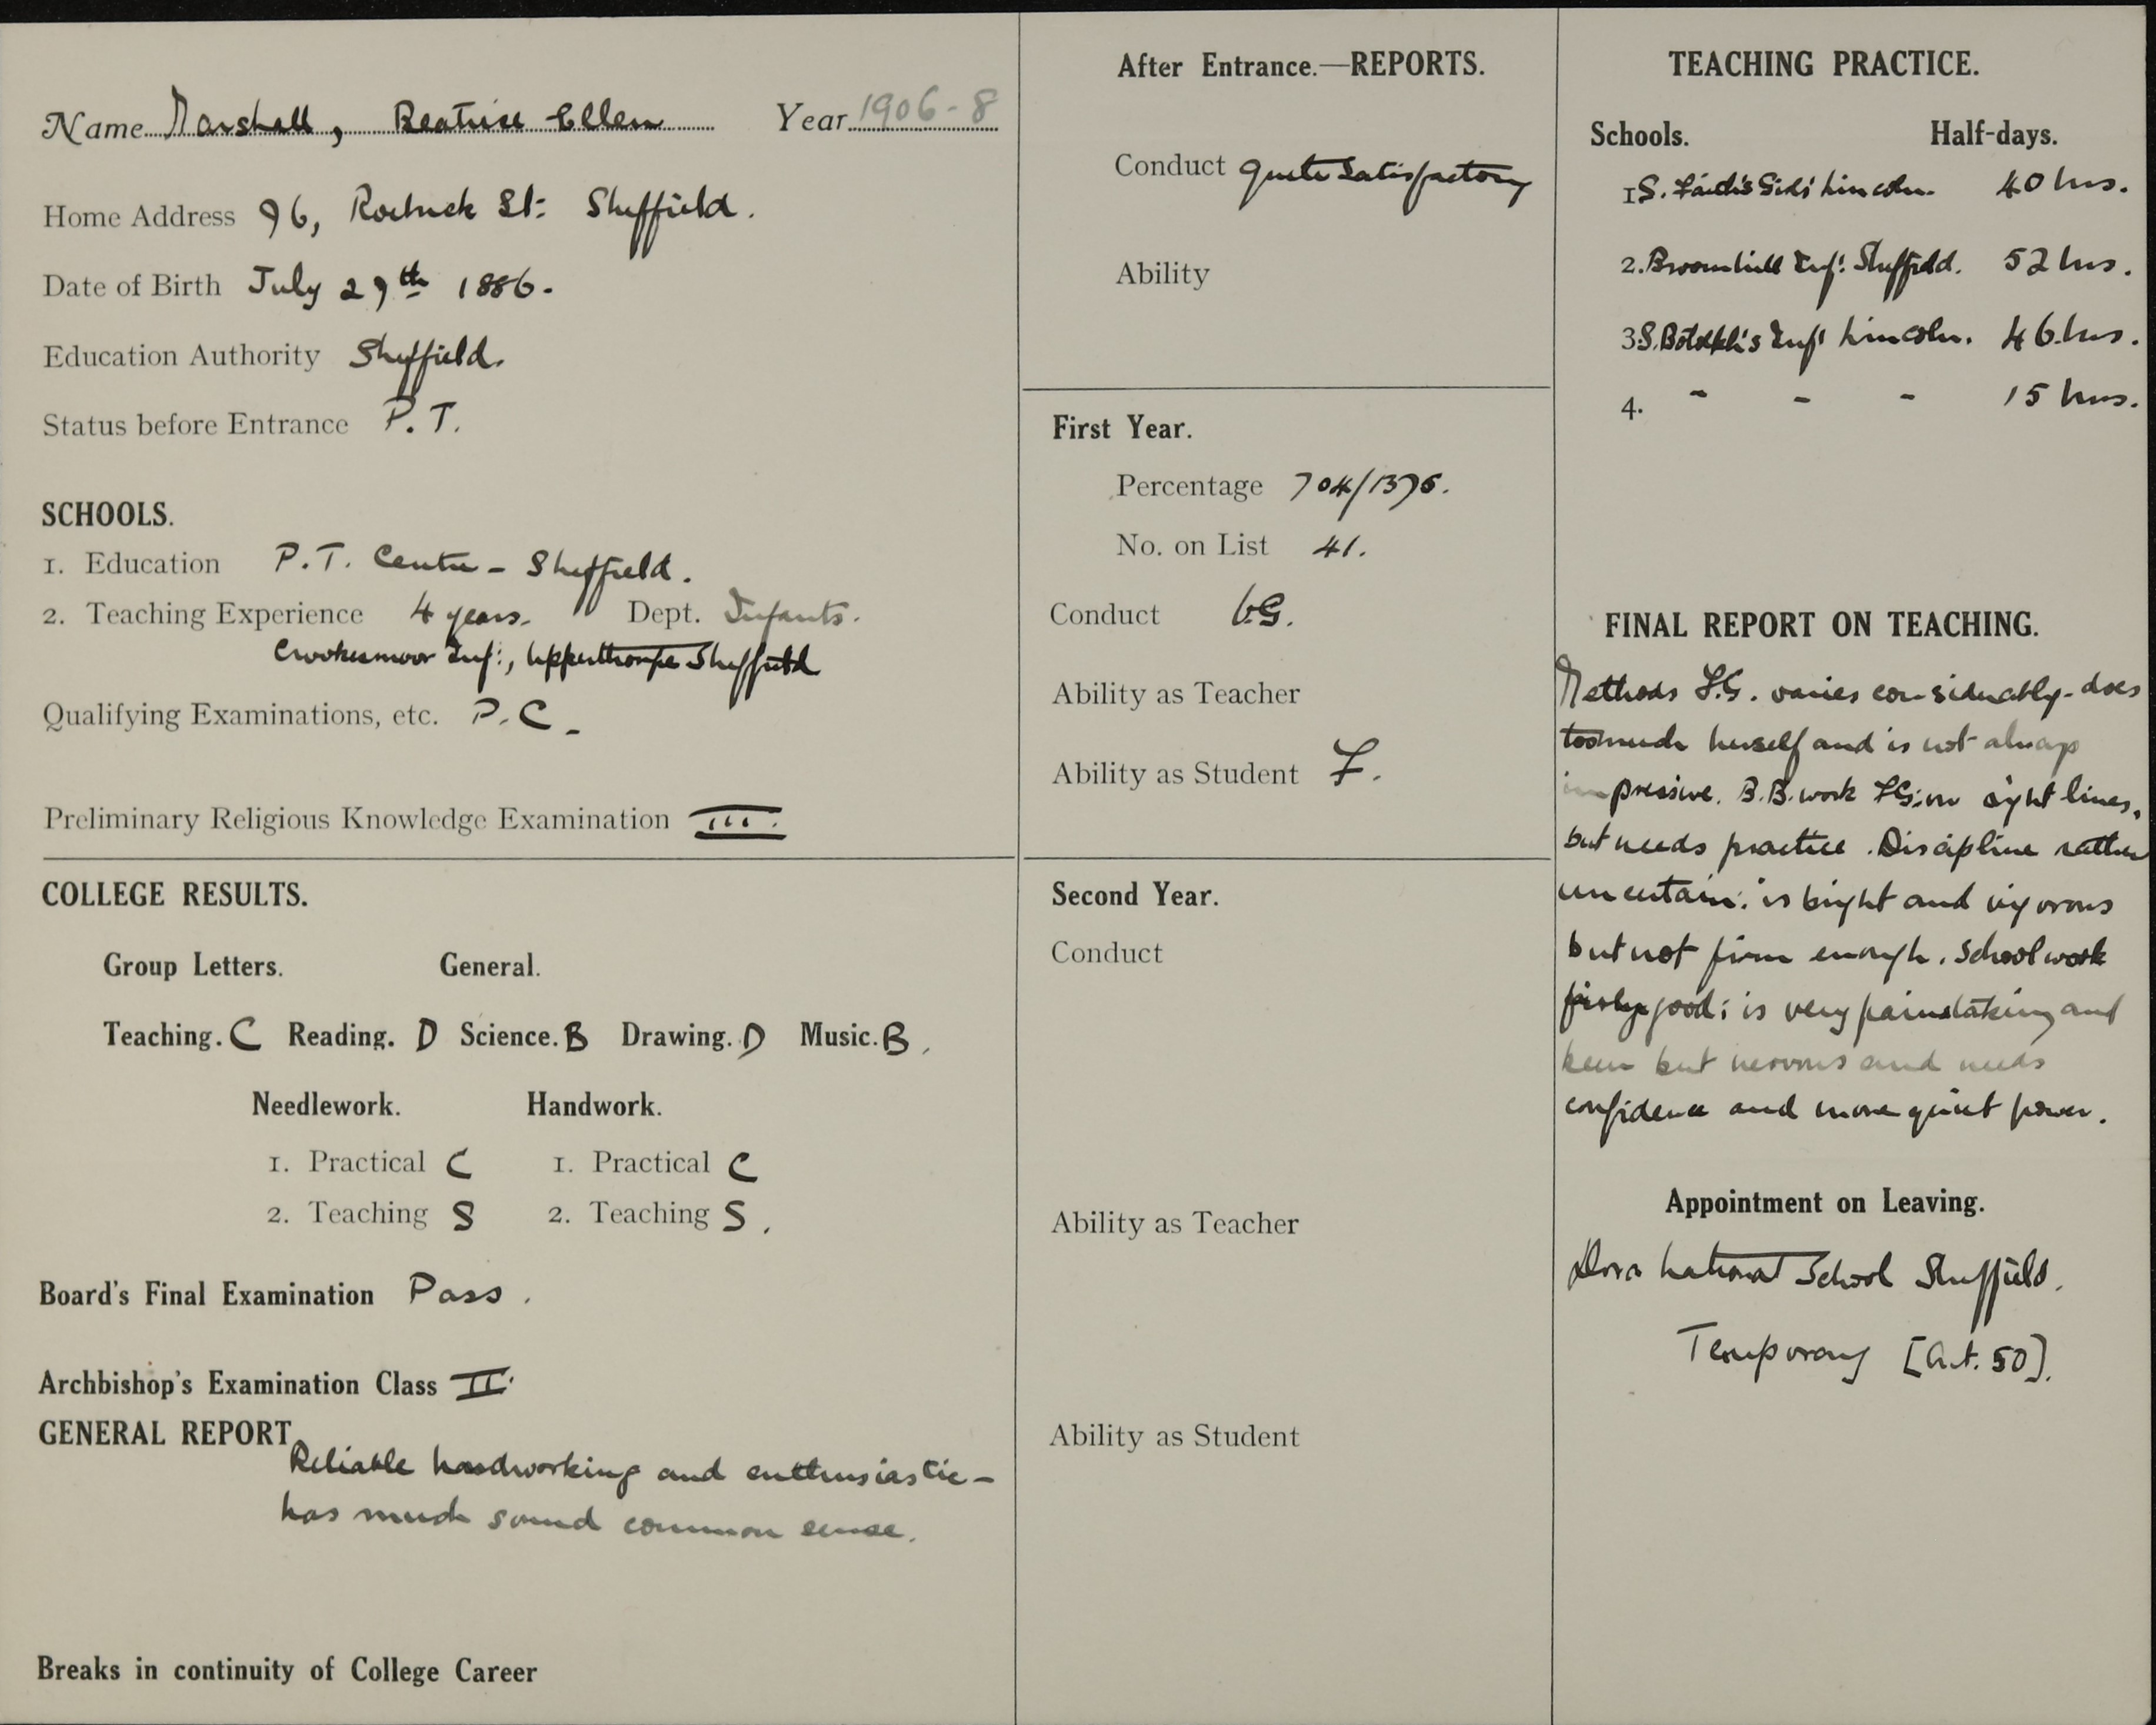 Name Marshall, Beatrice Ellen Year 1906-8
Home Address 96, Roebuck St: Sheffield.
Date of Birth July 29th 1886.
Education Authority Sheffield.
Status before Entrance P.T.
SCHOOLS.
1. Education P.T. Centre - Sheffield.
2. Teaching Experience 4 years. Dept. Infants.
Crookesmoor Inf:, Upperthorpe Sheffield
Qualifying Examinations, etc. P.C.
Preliminary Religious Knowledge Examination III.
COLLEGE RESULTS.
Group Letters. General.
Teaching. C Reading. D Science. B Drawing. D Music. B.
Needlework. Handwork.
1. Practical C 1. Practical C
2. Teaching S 2. Teaching S.
Board's Final Examination Pass.
Archbishop's Examination Class II.
GENERAL REPORT
Reliable hardworking and enthusiastic -
has much sound common sense.
Breaks in continuity of College Career
After Entrance.—REPORTS.
Conduct quite satisfactory
Ability
First Year.
Percentage 704/1375.
No. on List 41.
Conduct V.G.
Ability as Teacher
Ability as Student F.
Second Year.
Conduct
Ability as Teacher
Ability as Student
TEACHING PRACTICE.
Schools. Half-days.
1 S. Faith's Girls' Lincoln. 40 hrs.
2. Broomhill Inf: Sheffield. 52 hrs.
3 S. Botolph's Inf: Lincoln. 46 hrs.
4. - - - 15 hrs.
FINAL REPORT ON TEACHING.
Methods F.G. varies considerably - does
too much herself and is not always
impressive. B.B. work F.G: on right lines,
but needs practice. Discipline rather
uncertain: is bright and vigorous
but not firm enough. School work
fairly good: is very painstaking and
keen but nervous and needs
confidence and more quiet power.
Appointment on Leaving.
Dore National School Sheffield.
Temporary [Art. 50].